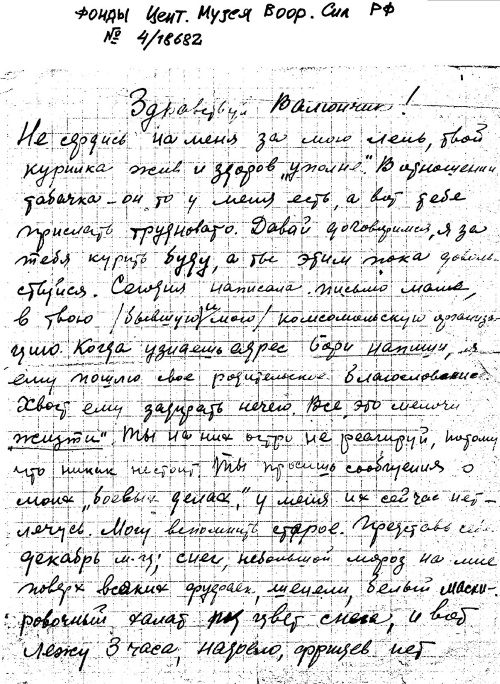 Фонды Цент. Музея Воор. Сил РФ
№ 4/18682
Здравствуй Валюнчик!
Не сердись на меня за мою лень, твой
курилка жив и здоров „уполне". В отношении
табачка – он то у меня есть, а вот тебе
прислать трудновато. Давай договоримся, я за
тебя курить буду, а ты этим пока доволь-
ствуйся. Сегодня написала письмо маме,
в твою /бывшую и мою/ комсомольскую организа-
цию. Когда узнаешь адрес Бори напиши, я
ему пошлю свое родительское благословение.
Хвост ему задирать нечего. Все это мелочи
жизти". Ты на них остро не реагируй, потому
что никак не стоит. Ты просишь сообщения о
моих „боевых делах", у меня их сейчас нет –
лечусь. Могу вспомнить старое. Представь себе
декабрь м-ц; снег, небольшой мороз на мне
поверх всяких фуфаек, шинели, белый маски-
ровочный халат под цвет снега, и вот
лежу 3 часа, надоело, фрицев нет